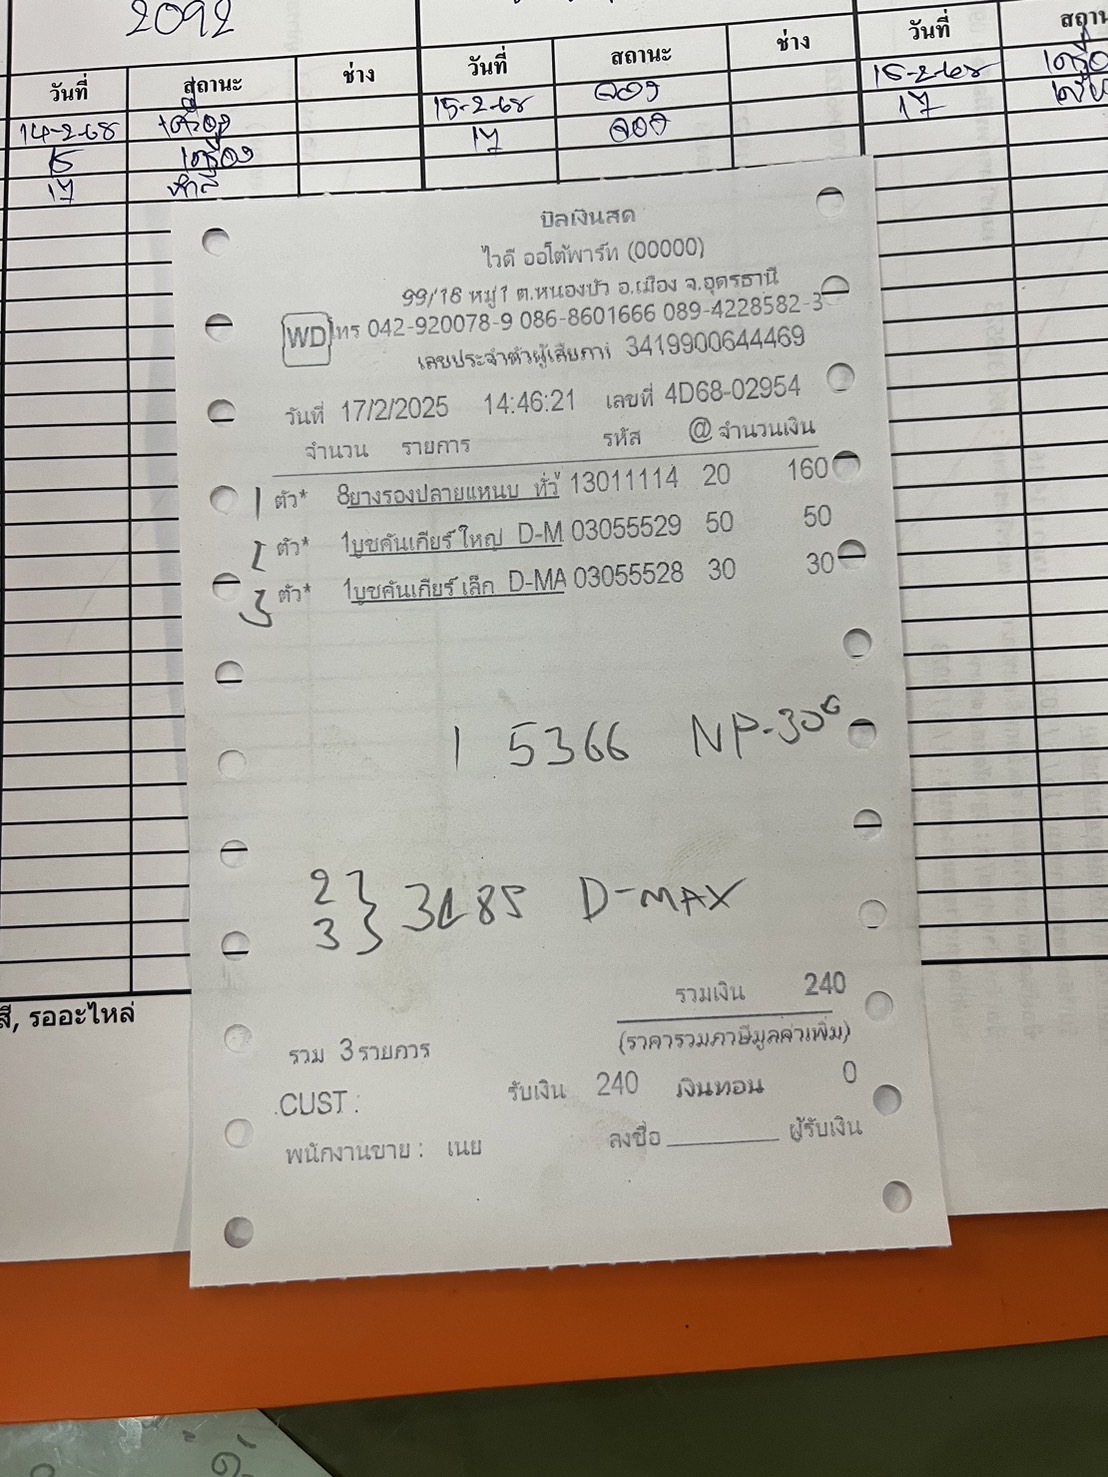 2092
วันที่ สถานะ ช่าง วันที่ สถานะ ช่าง วันที่
14-2-68 15-2-68 จอง 15-2-68
15 เครื่อง 17 จอง 17
17 ทำสี
บิลเงินสด
ไวดี ออโต้พาร์ท (00000)
99/18 หมู่1 ต.หนองบัว อ.เมือง จ.อุดรธานี
WD โทร 042-920078-9 086-8601666 089-4228582-3
เลขประจำตัวผู้เสียภาษี 3419900644469
วันที่ 17/2/2025 14:46:21 เลขที่ 4D68-02954
จำนวน รายการ รหัส @ จำนวนเงิน
1 ตัว* 8ยางรองปลายแหนบ ทั่ว 13011114 20 160
2 ตัว* 1บูชคันเกียร์ ใหญ่ D-M 03055529 50 50
3 ตัว* 1บูชคันเกียร์ เล็ก D-MA 03055528 30 30
1 5366 NP-300
2
3 } 3185 D-MAX
รวมเงิน 240
(ราคารวมภาษีมูลค่าเพิ่ม)
รวม 3รายการ
รับเงิน 240 เงินทอน 0
.CUST :
พนักงานขาย : เนย
ลงชื่อ ________ ผู้รับเงิน
สี, รออะไหล่